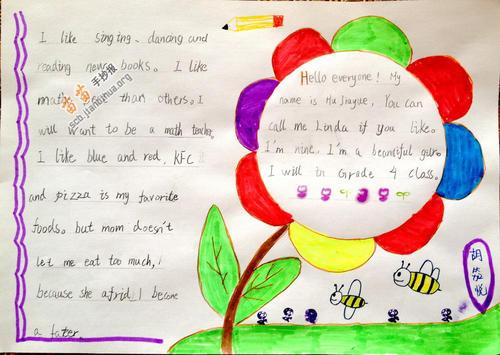 I like singing, dancing and
reading books. I like
math than others. I
will want to be a math teacher.
I like blue and red. KFC
and pizza is my favorite
foods. but mom doesn't
let me eat too much,
because she afrid I become
a fater.
Hello everyone! My
name is Hu Jiayue, You can
call me Linda if you like.
I'm nine. I'm a beautiful girl.
I will in Grade 4 class.
手抄报
scb.jianghua.org